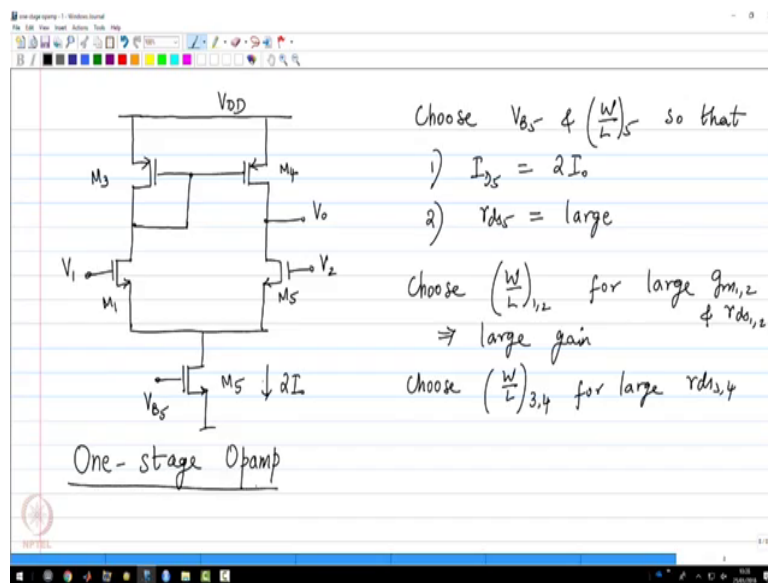 one-stage opamp - 1 - Windows Journal
File Edit View Insert Actions Tools Help
B I
VDD
M3
M4
Vo
V1
V2
M1
M5
VB5
M5 ↓ 2I
One-stage Opamp
Choose VB5 & (W/L)5 so that
1) ID5 = 2Io
2) rds5 = large
Choose (W/L)1,2 for large gm1,2
& rds1,2
⇒ large gain
Choose (W/L)3,4 for large rds3,4
NPTEL